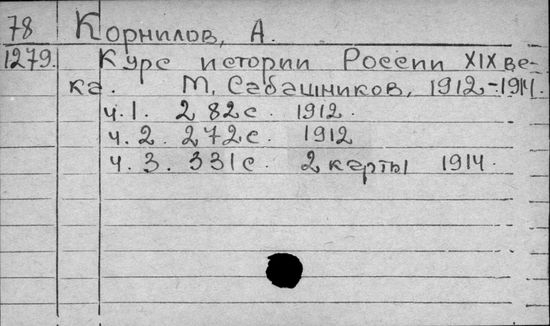 78 Корнилов, А.
1279. Курс истории России XIX ве-
ка. М, Сабашников, 1912-1914.
ч.1. 282с. 1912.
ч.2. 272с. 1912
ч.3. 331с. 2 карты 1914.